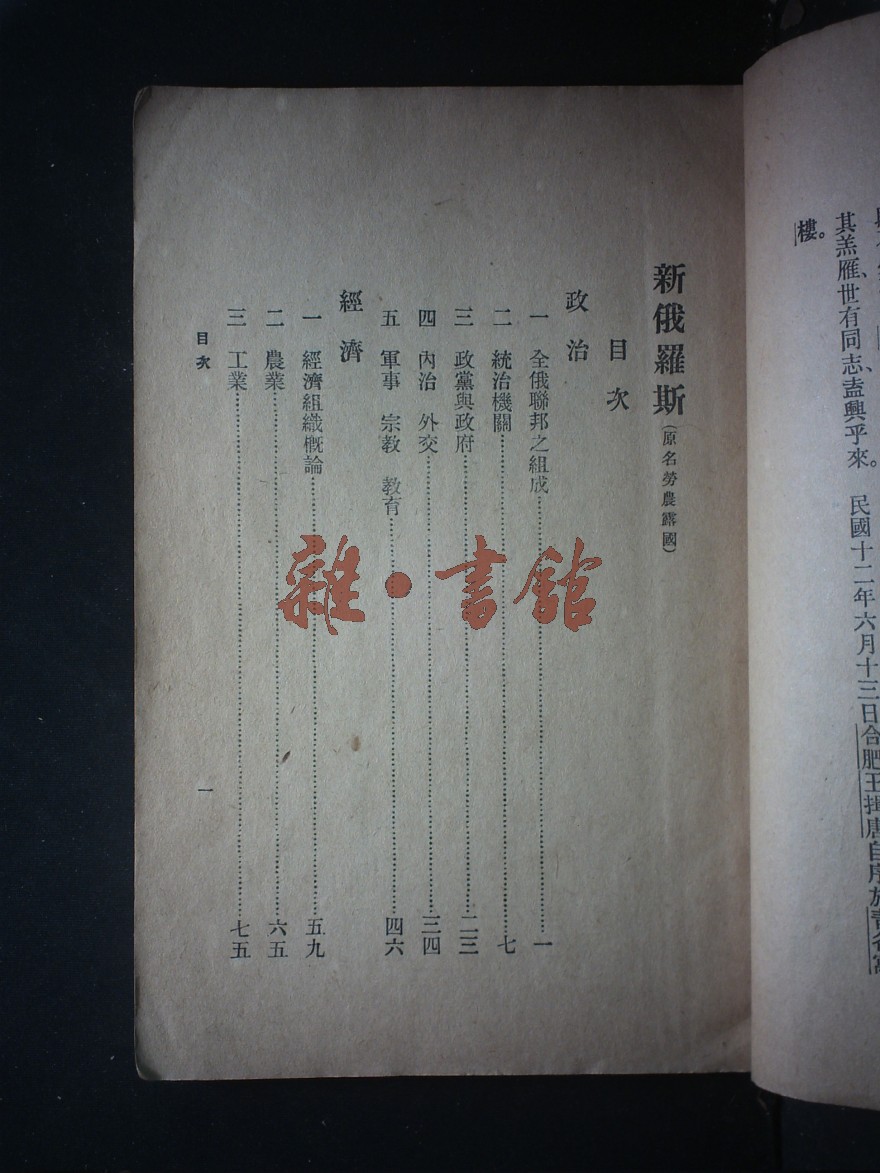 其羔雁、世有同志、盍興乎來。民國十二年六月十三日合肥王揖唐自序於
樓。
新俄羅斯(原名勞農露國)
目次
政治
一 全俄聯邦之組成……一
二 統治機關……七
三 政黨與政府……二三
四 內治 外交……三四
五 軍事 宗教 教育……四六
經濟
一 經濟組織概論……五九
二 農業……六五
三 工業……七五
目次
一
雜·書館